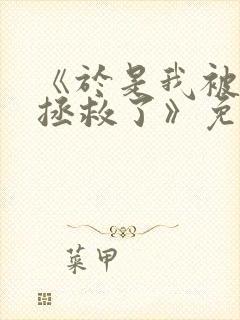 《於是我被
拯救了》免
菜甲